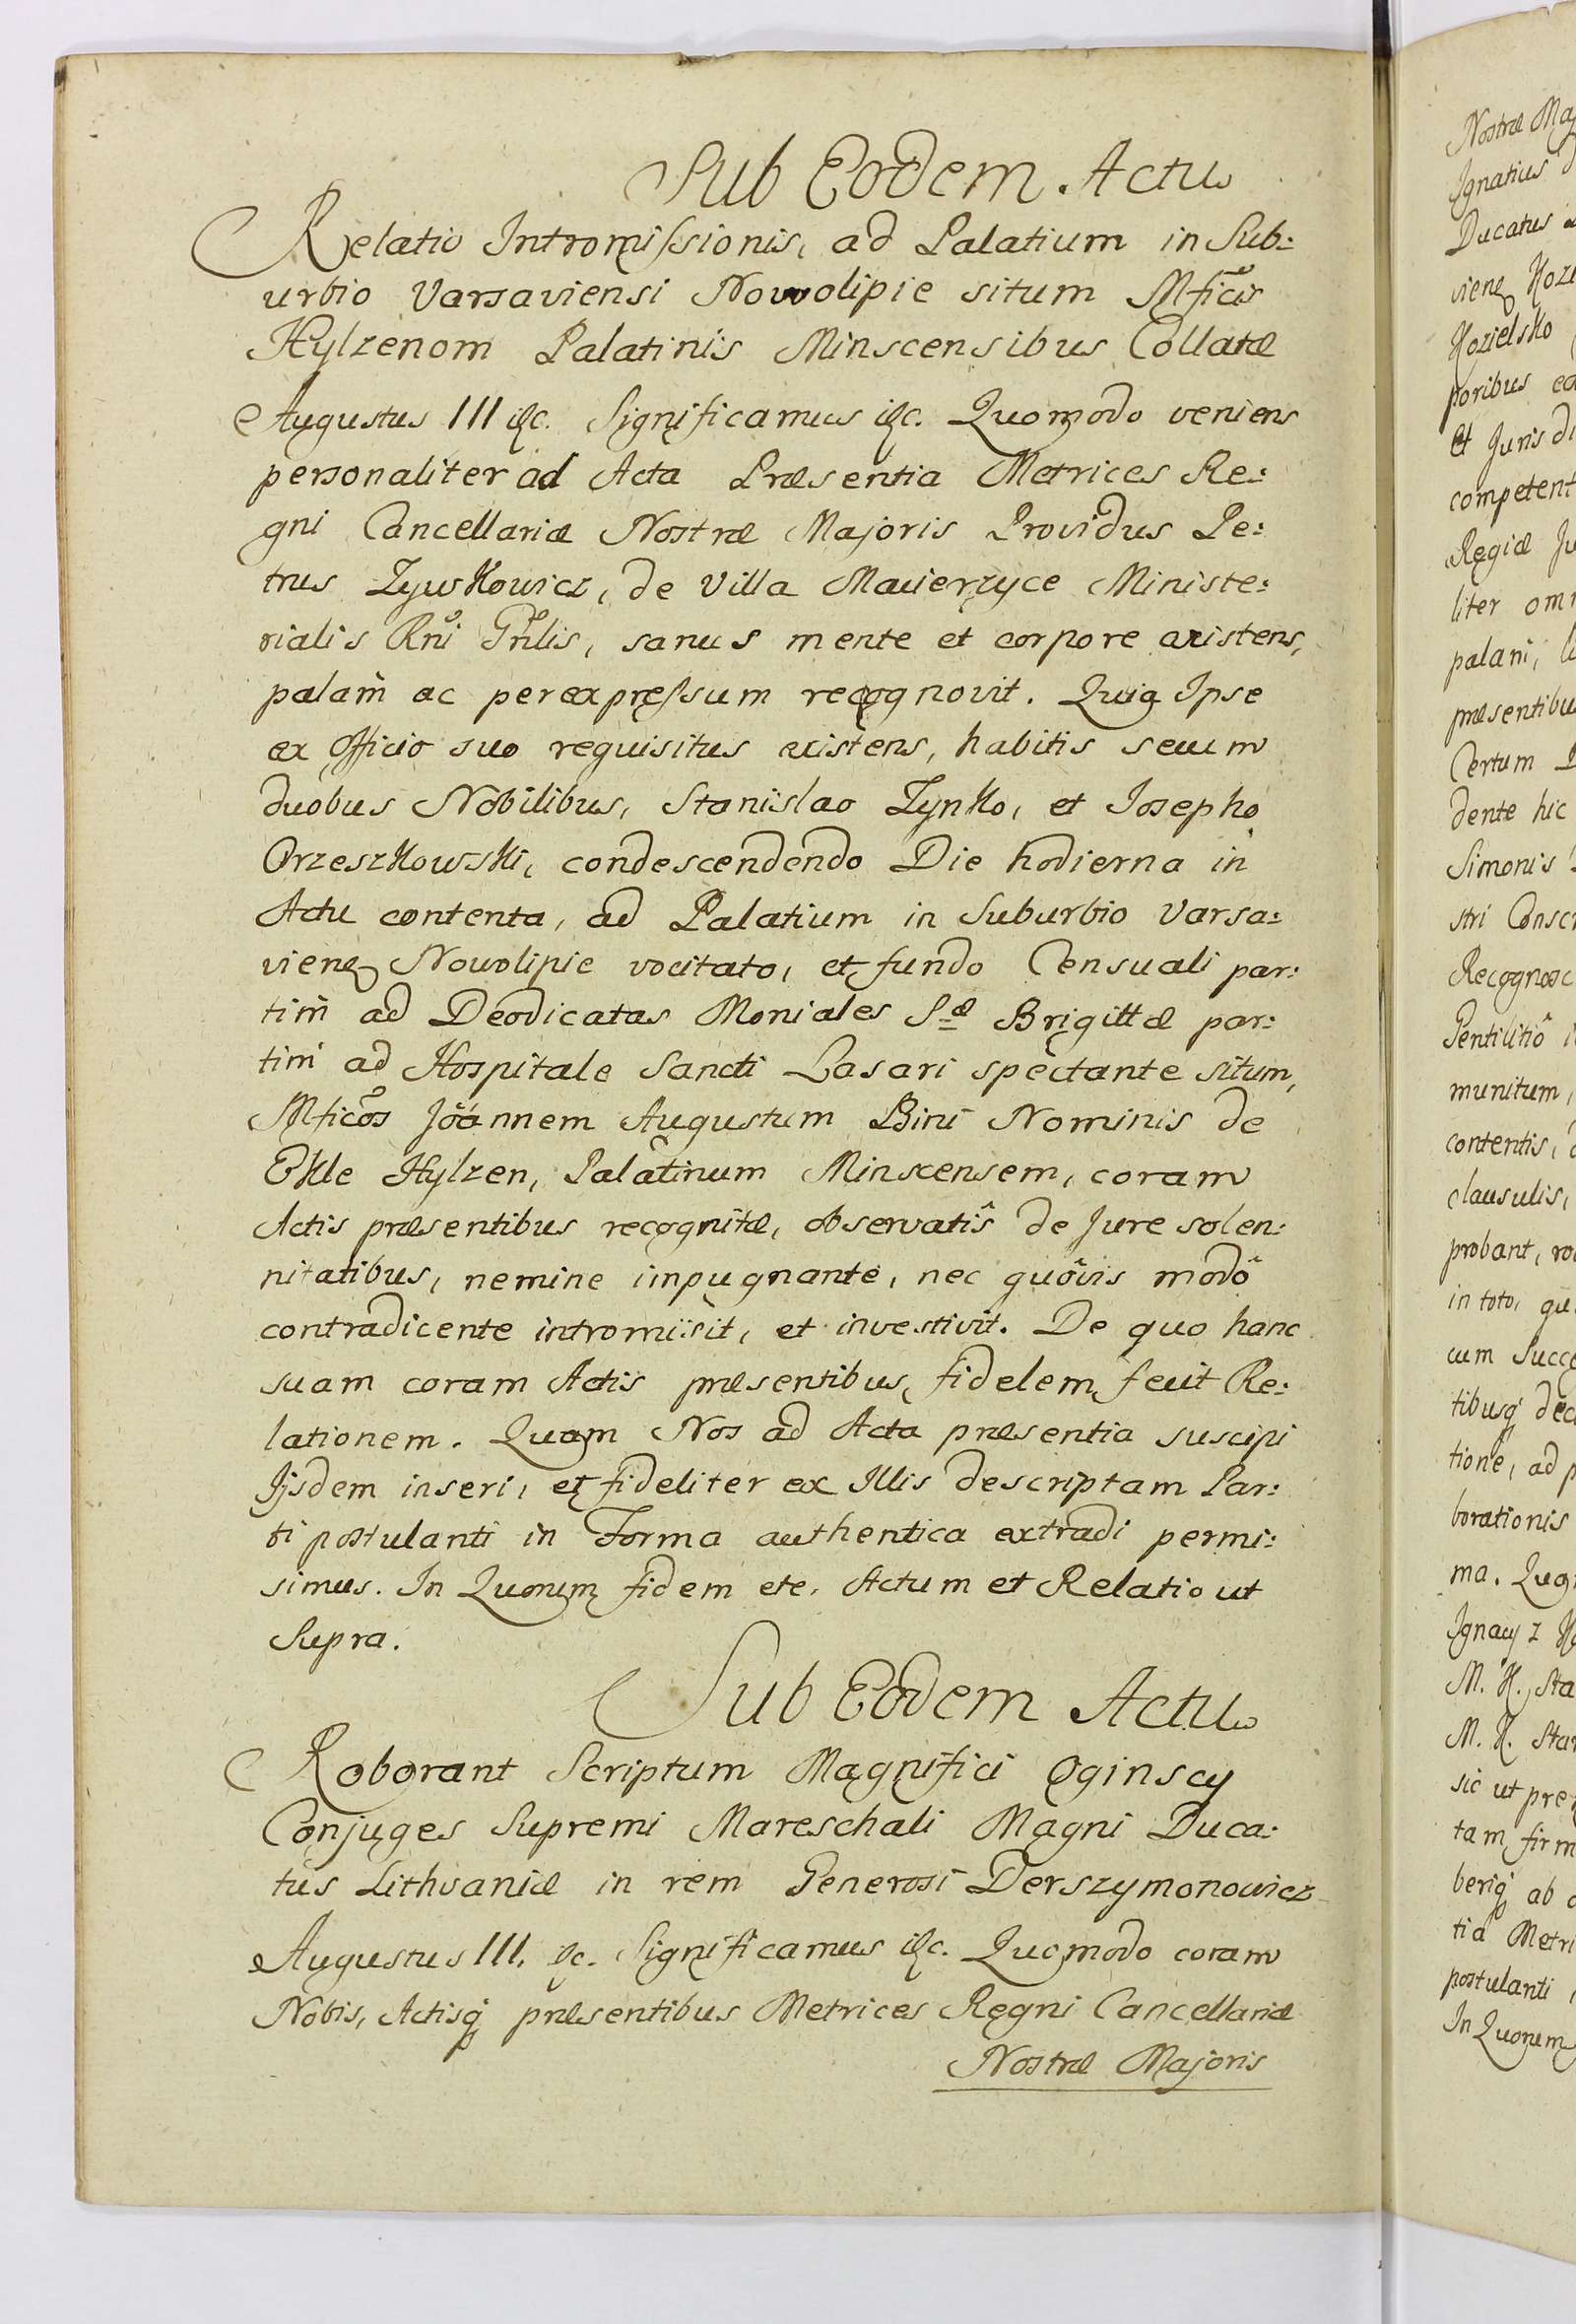 Sub Eodem Actu
Relatio Intromissionis, ad Palatium in Sub:
urbio Varsaviensi Nowolipie situm Mficis
Hylzenom Palatinis Minscensibus Collatæ
Augustus III &c. Significamus &c. Quomodo veniens
personaliter ad Acta Præsentia Metrices Re:
gni Cancellariæ Nostræ Majoris Providus Pe:
trus Zywkowicz, de Villa Macierzyce Ministe:
rialis Rni Gnlis, sanus mente et corpore existens,
palam ac per expressum recognovit. Quia Ipse
ex Officio suo requisitus existens, habitis secum
duobus Nobilibus, Stanislao Zynko, et Josepho
Orzeszkowski, condescendendo Die hodierna in
Actu contenta, ad Palatium in Suburbio Varsa:
vienq Nowolipie vocitato, et fundo Censuali par:
tim ad Deodicatas Moniales Sæ Brigittæ par:
tim ad Hospitale Sancti Lasari spectante situm,
Mficos Joannem Augustum Bini Nominis de
Ekle Hylzen, Palatinum Minscensem, coram
Actis præsentibus recognitæ, observatis de Jure solen:
nitatibus, nemine impugnante, nec quovis modô
contradicente intromisit, et investivit. De quo hanc
suam coram Actis præsentibus, fidelem fecit Re:
lationem. Quam Nos ad Acta præsentia suscipi
Ijsdem inseri, et fideliter ex Illis descriptam Par:
ti postulanti in Forma authentica extradi permi:
simus. In Quorum fidem etc. Actum et Relatio ut
Supra.
Sub Eodem Actu
Roborant Scriptum Magnifici Oginscy
Conjuges Supremi Mareschali Magni Duca:
tus Lithvaniæ in rem Generosi Derszymonowicz
Augustus III. &c. Significamus &c. Quomodo coram
Nobis, Actisq præsentibus Metrices Regni Cancellariæ
Nostræ Majoris
Nostræ Maj
Ignatius
Ducatus
vienq Koze
Kozielsko
poribus
et Jurisdi
competent
Regiæ Ju
liter omn
palam, li
præsentibu
Certum
dente hic
Simonis
stri Conscr
Recognosc
Gentilitiô
munitum,
contentis,
clausulis,
probant, ro
in toto, qu
cum Succe
tibusq dec
tione, ad p
borationis
ma. Quam
Ignacy z K
M. K. Sta
M. K. Star
sic ut præ
tam firm
beriq ab
tia Metri
postulanti
In Quorum